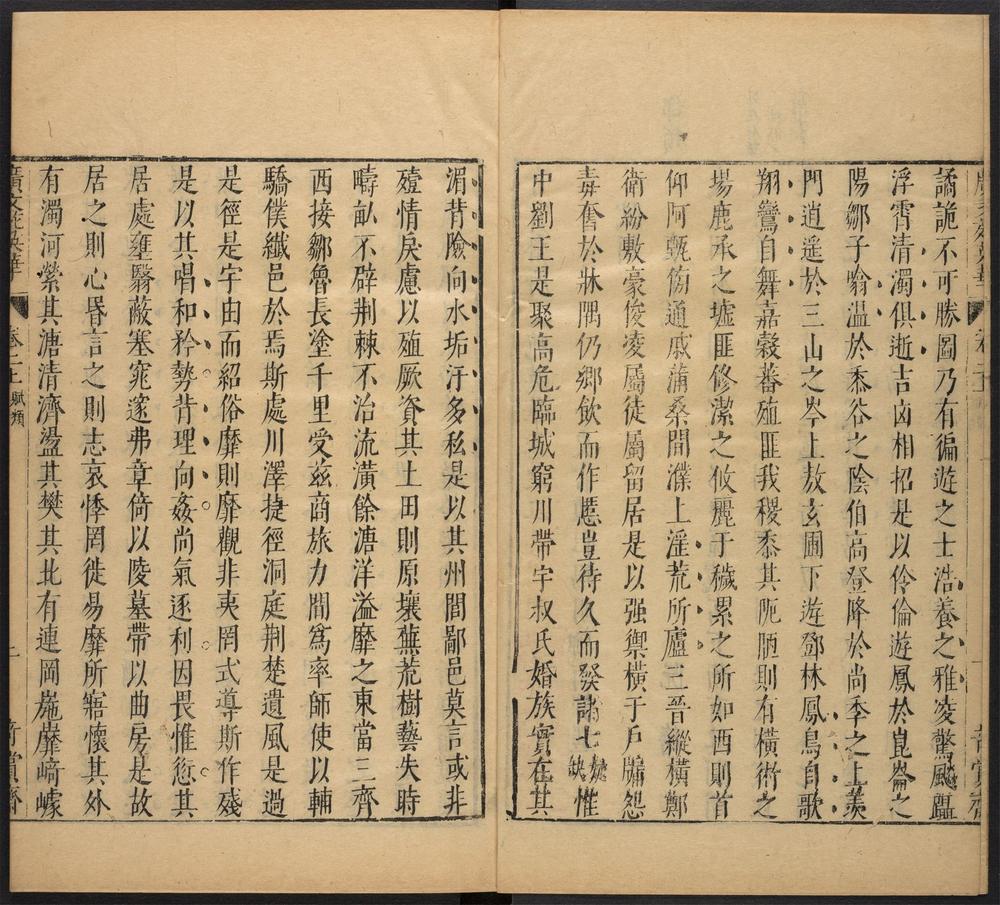 譎詭不可勝圖乃有徧遊之士浩養之雅凌驚飈躡
浮霄清濁俱逝吉凶相招是以伶倫遊鳳於崑崙之
陽鄒子噏溫於黍谷之陰伯高登降於尚季之上羨
門逍遥於三山之岑上敖玄圃下遊鄧林鳳鳥自歌
翔鸞自舞嘉穀蕃殖匪我稷黍其阨陋則有橫術之
場鹿豕之墟匪修潔之攸麗于穢累之所如西則首
仰阿甄傍通戚蒲桑間濮上淫荒所廬三晋縱橫鄭
衛紛敷豪俊凌厲徒屬留居是以强禦横于戶牖怨
毒奮於牀隅仍郷飲而作慝豈待久而發諸七缺惟
中劉王是聚高危臨城窮川帶宇叔氏婚族實在其
湄背險向水垢汙多私是以其州閭鄙邑莫言或非
殪情戾慮以殖厥資其土田則原壤蕪荒樹藝失時
疇畝不辟荆棘不治流潢餘溏洋溢靡之東當三齊
西接鄒魯長塗千里受兹商旅力間爲率師使以輔
驕僕纖邑於焉斯處川澤捷徑洞庭荆楚遺風是過
是徑是宇由而紹俗靡則靡觀非夷罔式導斯作殘
是以其唱和矜勢背理向姦尚氣逐利因畏惟愆其
居處壅翳蔽塞窕邃弗章倚以陵墓帶以曲房是故
居之則心昏言之則志哀悸罔徙易靡所寤懷其外
有濁河縈其溏清濟盪其樊其北有連岡崺𡾰崎嶁
廣文選 卷二上 賦類 二